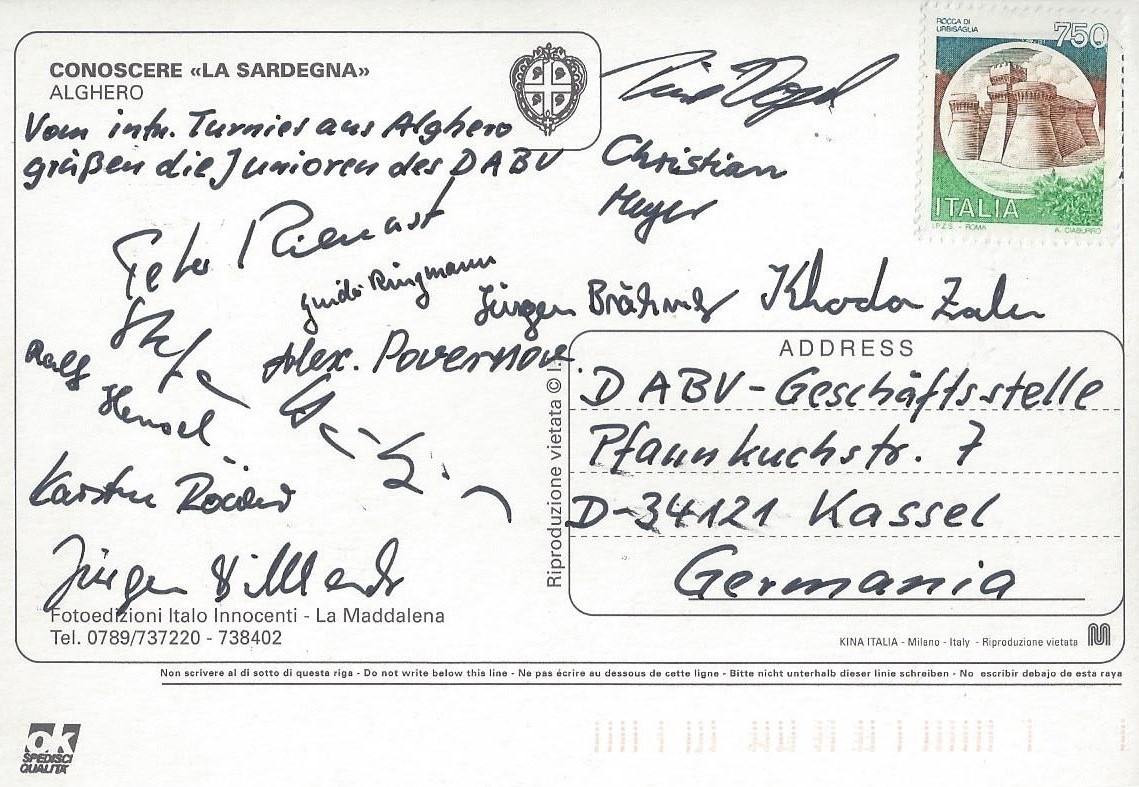 CONOSCERE «LA SARDEGNA»
ALGHERO
Vom intn. Turnier aus Alghero
grüßen die Junioren des DABV
Peter Rienast
Guido Ringmann
Ralf
Hensel
Alex. Povernov
Karsten Röder
Jürgen
Fotoedizioni Italo Innocenti - La Maddalena
Tel. 0789/737220 - 738402
Christian
Meyer
Jürgen
Khoda
ROCCA DI
URBISAGLIA
750
ITALIA
I.P.Z.S. - ROMA
A. CIABURRO
Riproduzione vietata © I.
ADDRESS
DABV-Geschäftsstelle
Pfannkuchstr. 7
D-34121 Kassel
Germania
KINA ITALIA - Milano - Italy - Riproduzione vietata
Non scrivere al di sotto di questa riga - Do not write below this line - Ne pas écrire au dessous de cette ligne - Bitte nicht unterhalb dieser linie schreiben - No escribir debajo de esta raya
ok
SPEDISCI
QUALITA'